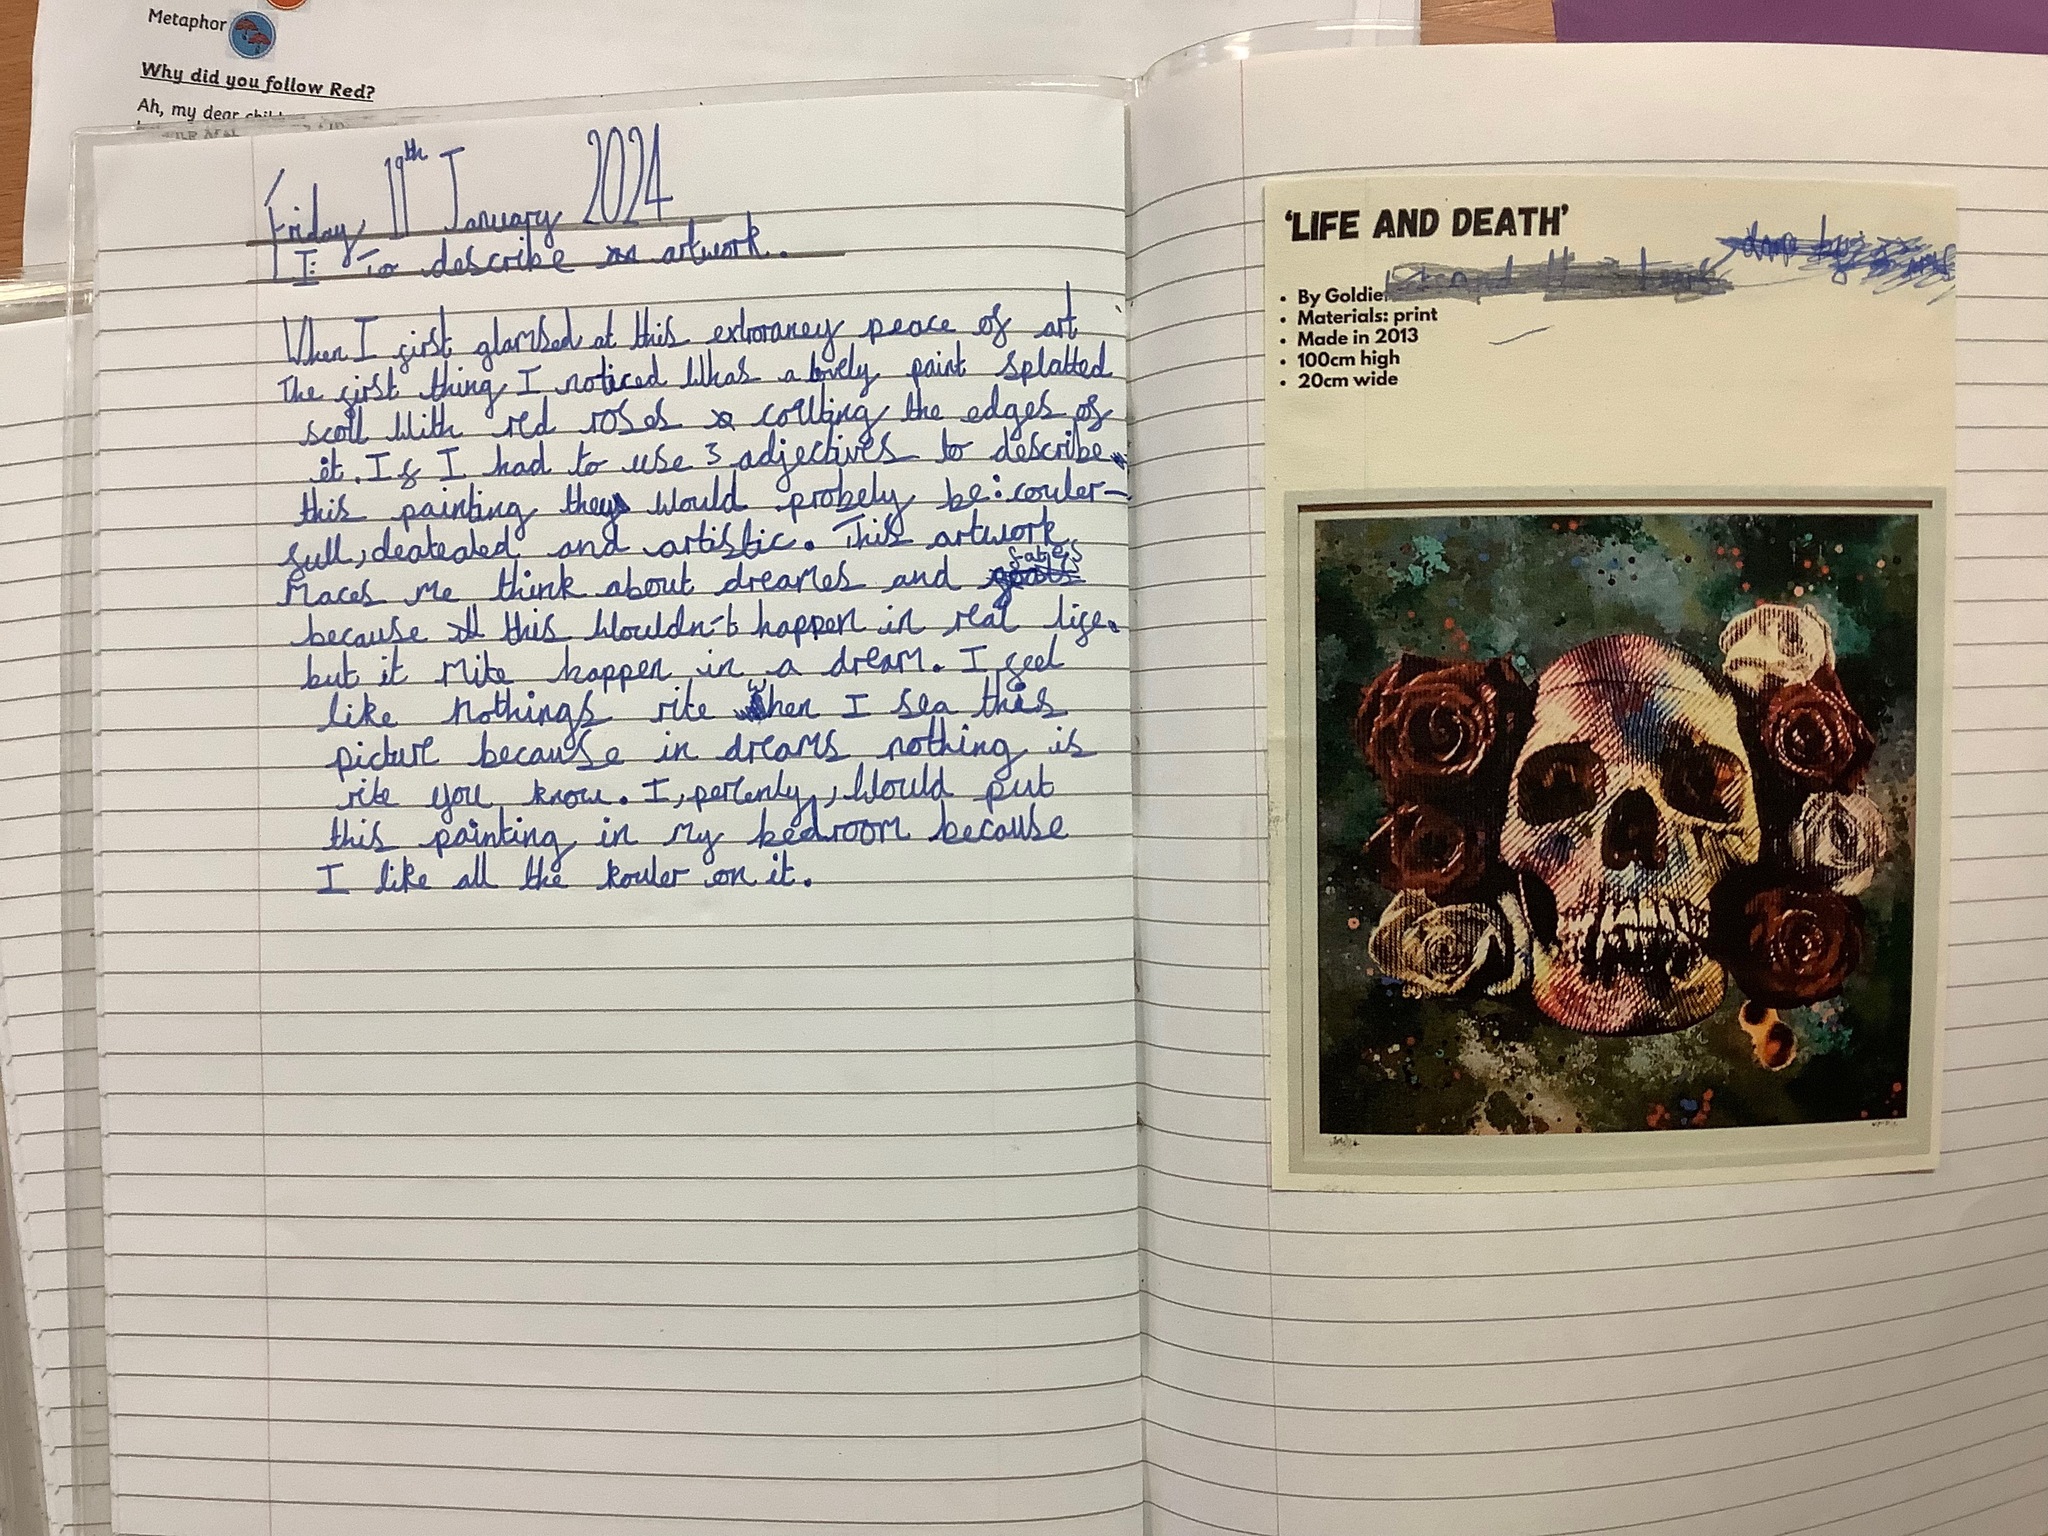 Metaphor
Why did you follow Red?
Ah, my dear
Friday 19th January 2024
I: To describe an artwork.
When I first glansed at this extroraney peace of art
The first thing I noticed Whas a lovely paint splatted
scoll With red roses couling the edges of
it. If I had to use 3 adjectives to describe
this painting they Would probely be: couler-
full, deatealed and artistic. This artwork
Maces me think about dreames and fabels
because this Wouldn't happen in real life.
but it Mite happen in a dream. I feel
like Nothings rite When I sea this
picture because in dreams nothing is
rite you know. I, perlenly, Would put
this painting in my bedroom because
I like all the kouler on it.
'LIFE AND DEATH'
• By Goldie
• Materials: print
• Made in 2013
• 100cm high
• 20cm wide